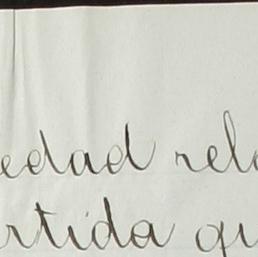 edad rela
rtida qu